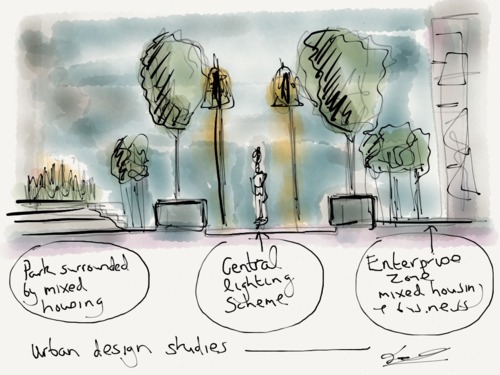 Park surrounded
by mixed
housing
Central
lighting
Scheme
Enterprise
Zone
mixed housing
& business
Urban design studies